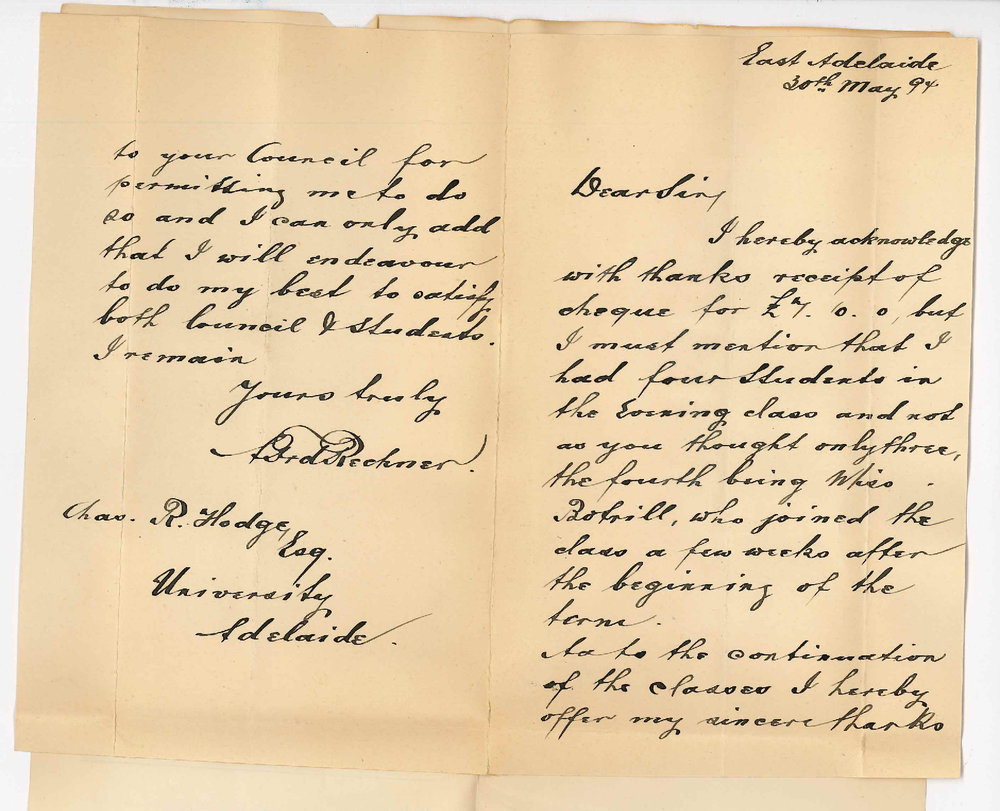 East Adelaide
30th May 94
Dear Sir,
I hereby acknowledge
with thanks receipt of
cheque for £7. 10. 0, but
I must mention that I
had four Students in
the Evening class and not
as you thought only three,
the fourth being Miss
Botrill, who joined the
class a few weeks after
the beginning of the
term.
As to the continuation
of the classes I hereby
offer my sincere thanks
to your Council for
permitting me to do
so and I can only add
that I will endeavour
to do my best to satisfy
both Council & Students.
I remain
Yours truly
Reckner.
Chas. R. Hodge,
Esq.
University
Adelaide.